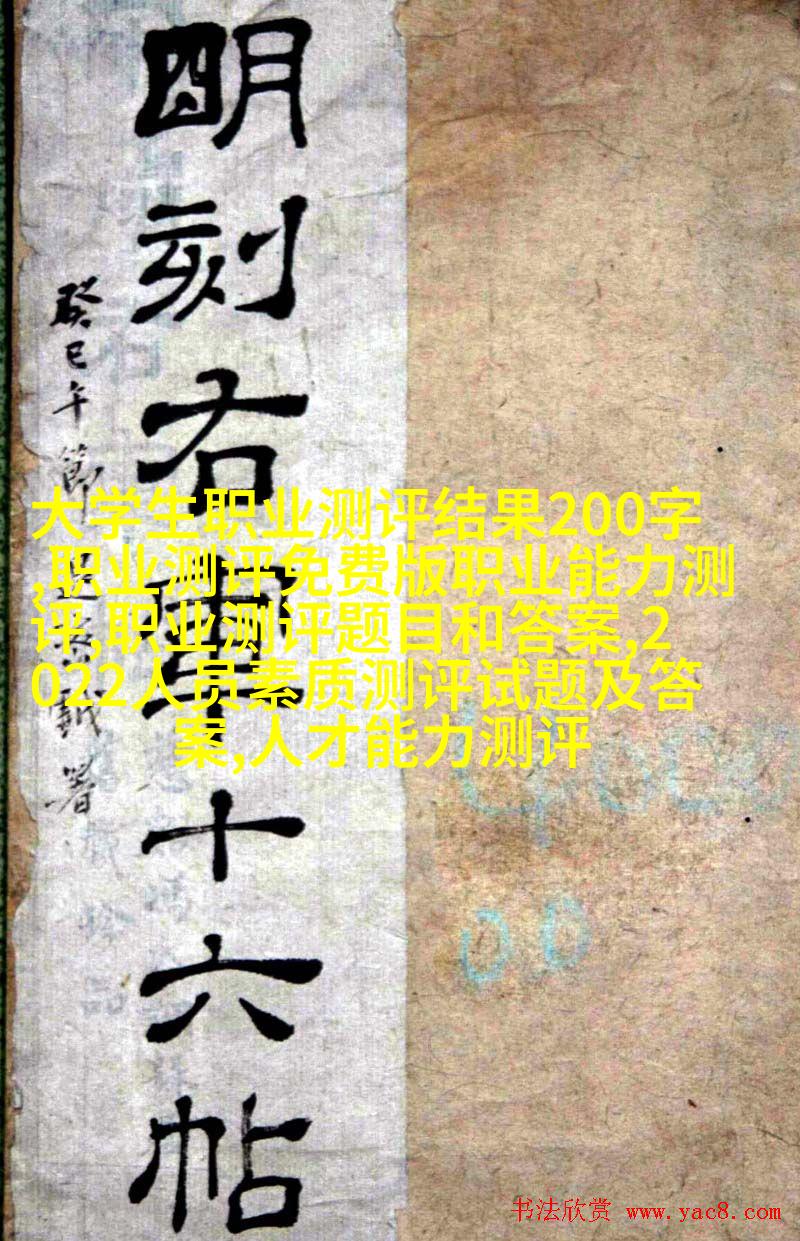 明刻右軍十六帖
癸巳午節
署
大学生职业测评结果200字
,职业测评免费版职业能力测
评,职业测评题目和答案,2
022人员素质测评试题及答
案,人才能力测评
书法欣赏 www.yac8.com